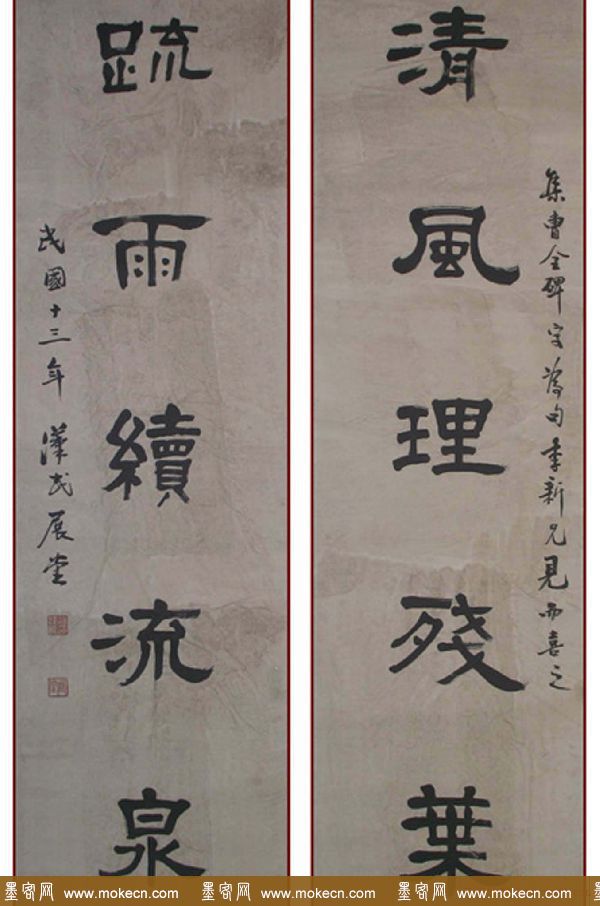 清風理殘葉
集曹全碑字為句季新兄見而喜之
疏雨續流泉
民國十三年 漢民展堂
墨客网 www.mokecn.com 墨客网 www.mokecn.com 墨客网 www.mokecn.com